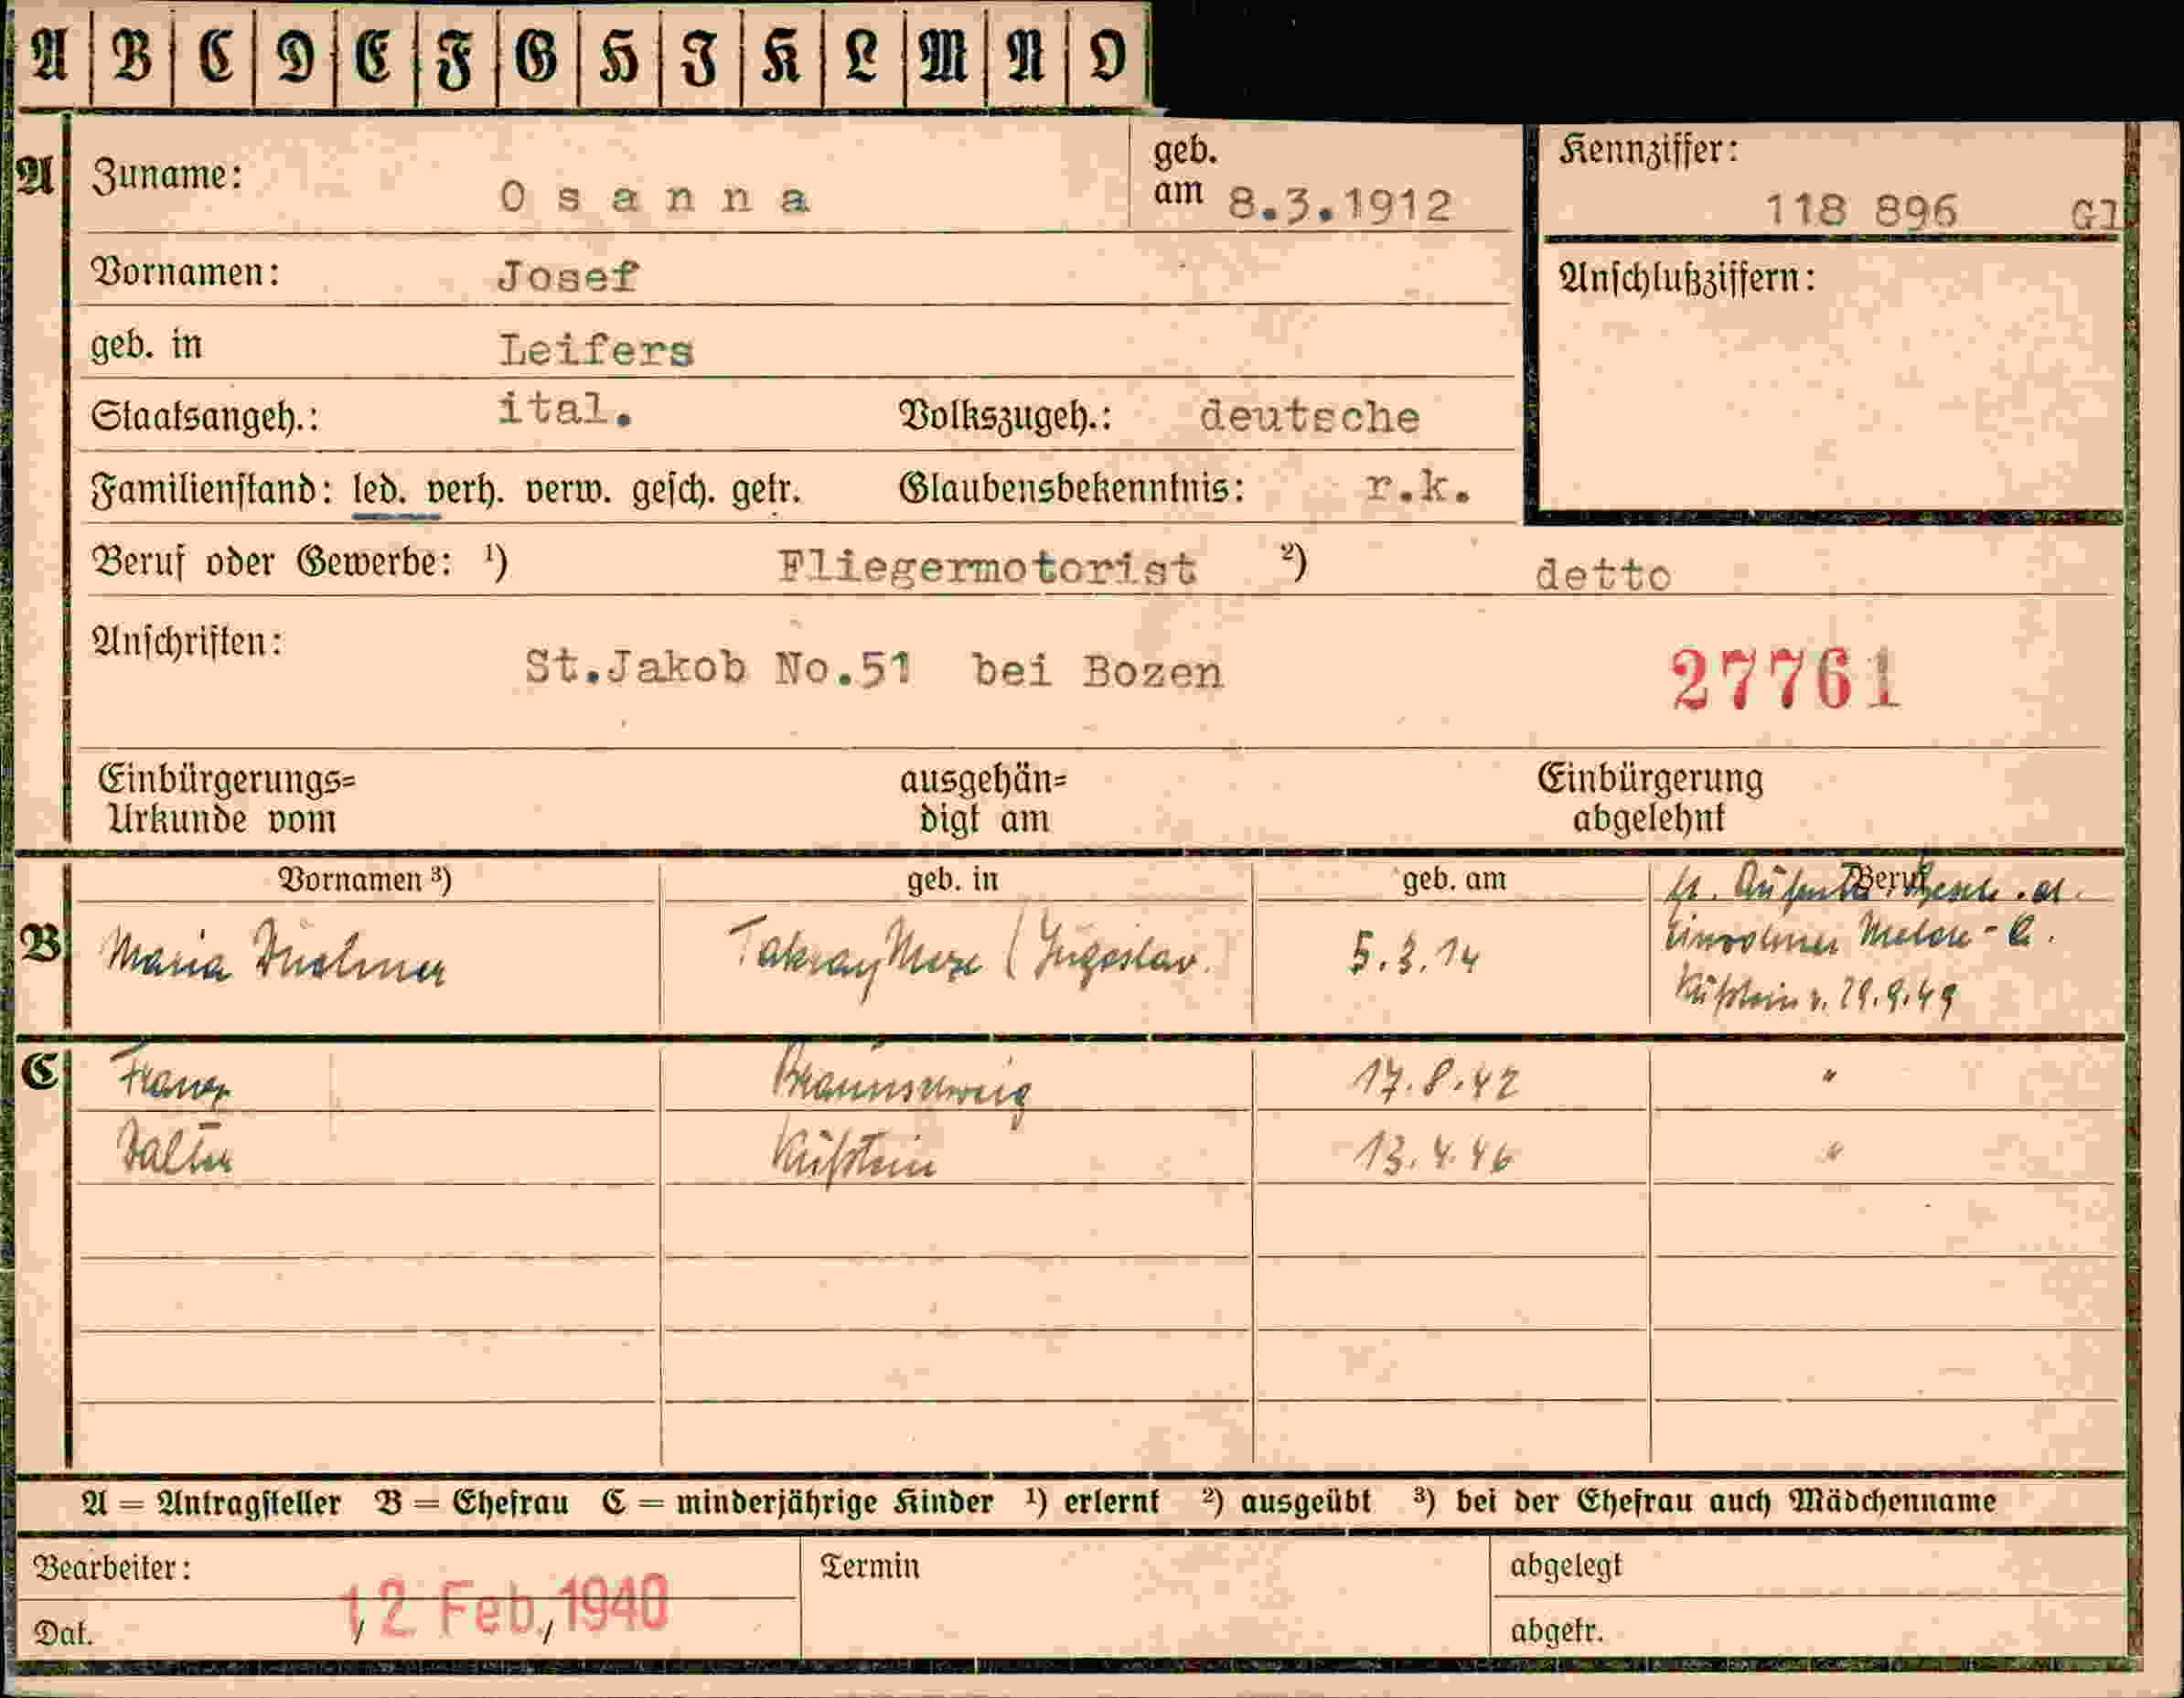 A B C D E F G H I K L M N O
A Zuname: Osanna geb. am 8.3.1912 Kennziffer: 118 896 GJ
Vornamen: Josef Anschlußziffern:
geb. in Leifers
Staatsangeh.: ital. Volkszugeh.: deutsche
Familienstand: led. verh. verw. gesch. getr. Glaubensbekenntnis: r.k.
Beruf oder Gewerbe: ¹) Fliegermotorist ²) detto
Anschriften: St.Jakob No.51 bei Bozen 27761
Einbürgerungs= ausgehän= Einbürgerung
Urkunde vom digt am abgelehnt
Vornamen ³) geb. in geb. am Beruf
B Maria (Jugoslav. 5.3.14
Kufstein v. 29.9.49
C Franz Braunschweig 17.8.42 "
Walter Kufstein 13.4.46 "
A = Antragsteller B = Ehefrau C = minderjährige Kinder ¹) erlernt ²) ausgeübt ³) bei der Ehefrau auch Mädchenname
Bearbeiter: Termin abgelegt
Dat. 12 Feb. 1940 abgetr.